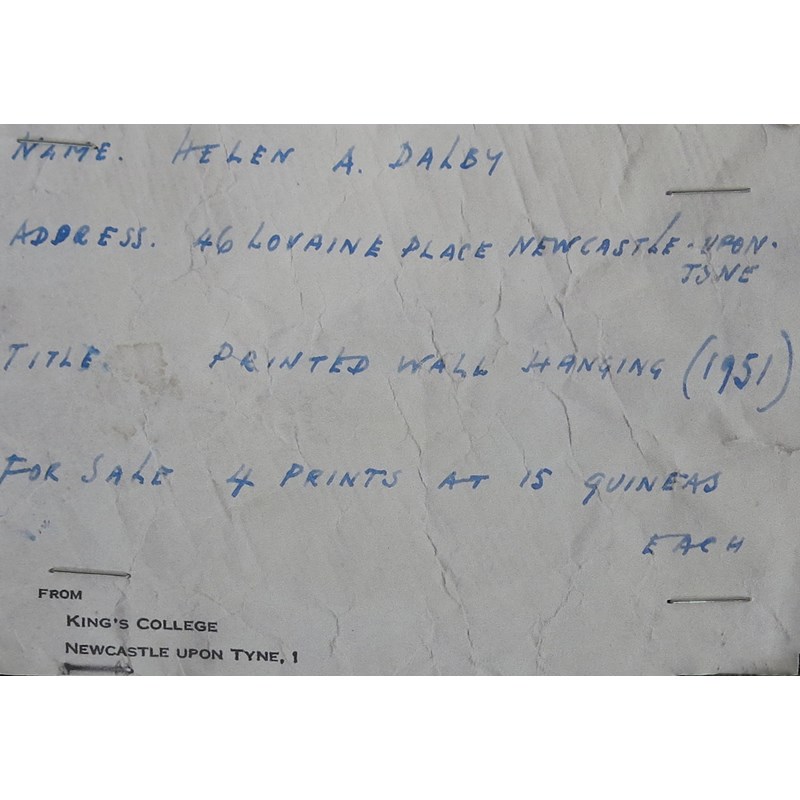 NAME. HELEN A. DALBY
ADDRESS. 46 LOVAINE PLACE NEWCASTLE-UPON-
TYNE
TITLE. PRINTED WALL HANGING (1951)
FOR SALE 4 PRINTS AT 15 GUINEAS
EACH
FROM
KING'S COLLEGE
NEWCASTLE UPON TYNE, 1